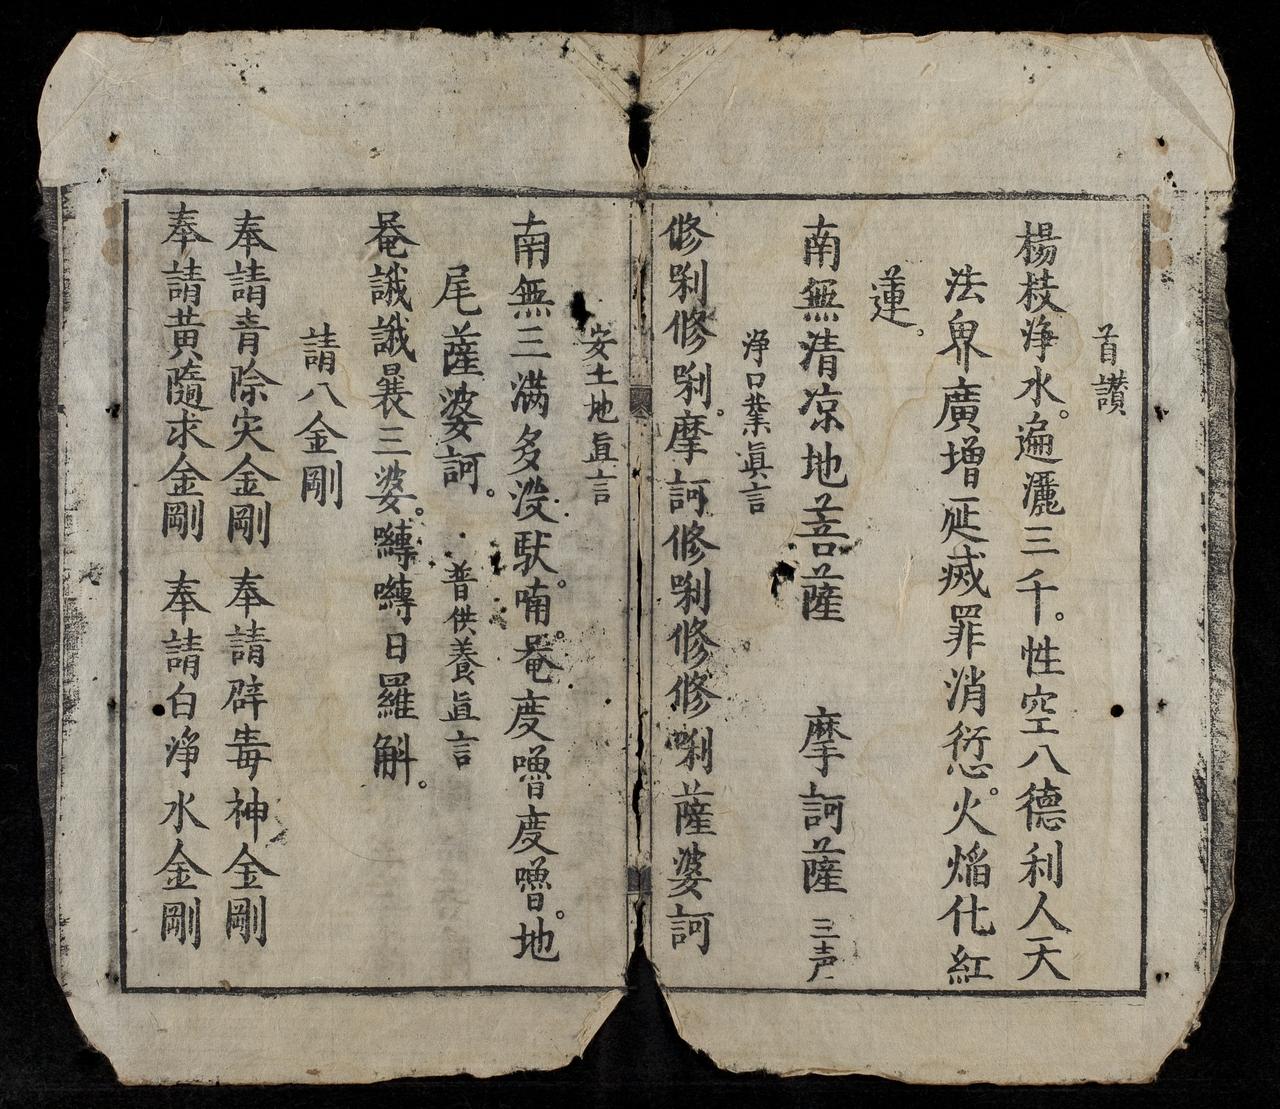 首讃
楊枝淨水。遍灑三千。性空八德利人天
法界廣增延滅罪消愆。火焰化紅
蓮。
南無清凉地菩薩　摩訶薩 三声
淨口業眞言
修唎修唎。摩訶修唎修修唎薩婆訶
安土地眞言
南無三滿多没馱。喃。唵度嚕度嚕。地
尾薩婆訶。 普供養眞言
唵誐誐曩三婆。嚩嚩日羅斛。
請八金剛
奉請青除灾金剛　奉請辟毒神金剛
奉請黃隨求金剛　奉請白淨水金剛